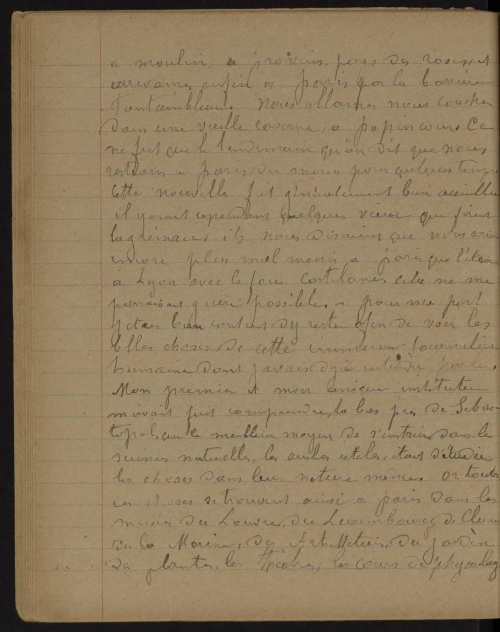 a moulin a provins pays des roses, et
arrivames enfin a paris par la barrière
fontainbleau. Nous allames nous coucher
dans une vieille caserne, a popincour. Ce
ne fut que le lendemain qu'on dit que nous
restions a paris du moins pour quelques temps
cette nouvelle fut généralement bien accueillie
il y avait cependant quelques vieux qui
la grimace, ils nous disaient que nous
encore plus mal menés a paris que l'étions
à Lyon avec le
paraissait guère possible. pour ma part
j'étais bien content d'y rester afin de voir les
belles choses de cette immense fourmilière
humaine dont j'avais déjà entendu parler.
Mon premier et mon unique instituteur
m'avait fait comprendre, la bas près de Sébas-
topol, que le meilleur moyen de s'instruire dans les
sciences naturelles, les seules utiles, était d'étudier
les choses dans leur nature même. Or toutes
ces choses se trouvent aussi a paris dans les
musées du Louvre, du Luxembourg, de Cluny
de la Marine, des du jardin
des plantes, les cours de physiolog